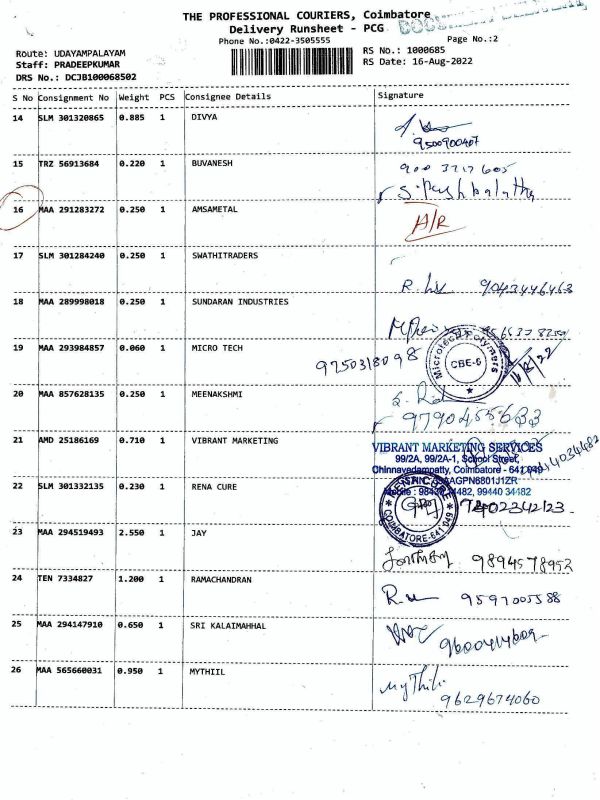 THE PROFESSIONAL COURIERS, Coimbatore
Delivery Runsheet - PCG
Phone No.:0422-3505555
Page No.:2
Route: UDAYAMPALAYAM
Staff: PRADEEPKUMAR
DRS No.: DCJB100068502
RS No.: 1000685
RS Date: 16-Aug-2022
S No Consignment No Weight PCS Consignee Details Signature
14 SLM 301320865 0.885 1 DIVYA
9500900407
15 TRZ 56913684 0.220 1 BUVANESH
S. Pushpalatha
16 MAA 291283272 0.250 1 AMSAMETAL A/R
17 SLM 301284240 0.250 1 SWATHITRADERS
9043446463
18 MAA 289998018 0.250 1 SUNDARAN INDUSTRIES
19 MAA 293984857 0.060 1 MICRO TECH
9750318098
Microtech Polymers
CBE-6
20 MAA 857628135 0.250 1 MEENAKSHMI
9790455633
21 AMD 25186169 0.710 1 VIBRANT MARKETING
VIBRANT MARKETING SERVICES
99/2A, 99/2A-1, School Street,
Chinnavedampatty, Coimbatore - 641 049
34482, 99440 34482
22 SLM 301332135 0.230 1 RENA CURE
COIMBATORE-641 049
7402342123
23 MAA 294519493 2.550 1 JAY
9894578952
24 TEN 7334827 1.200 1 RAMACHANDRAN
9597005588
25 MAA 294147910 0.650 1 SRI KALAIMAHHAL
26 MAA 565660031 0.950 1 MYTHIIL
Mythili
9629674060